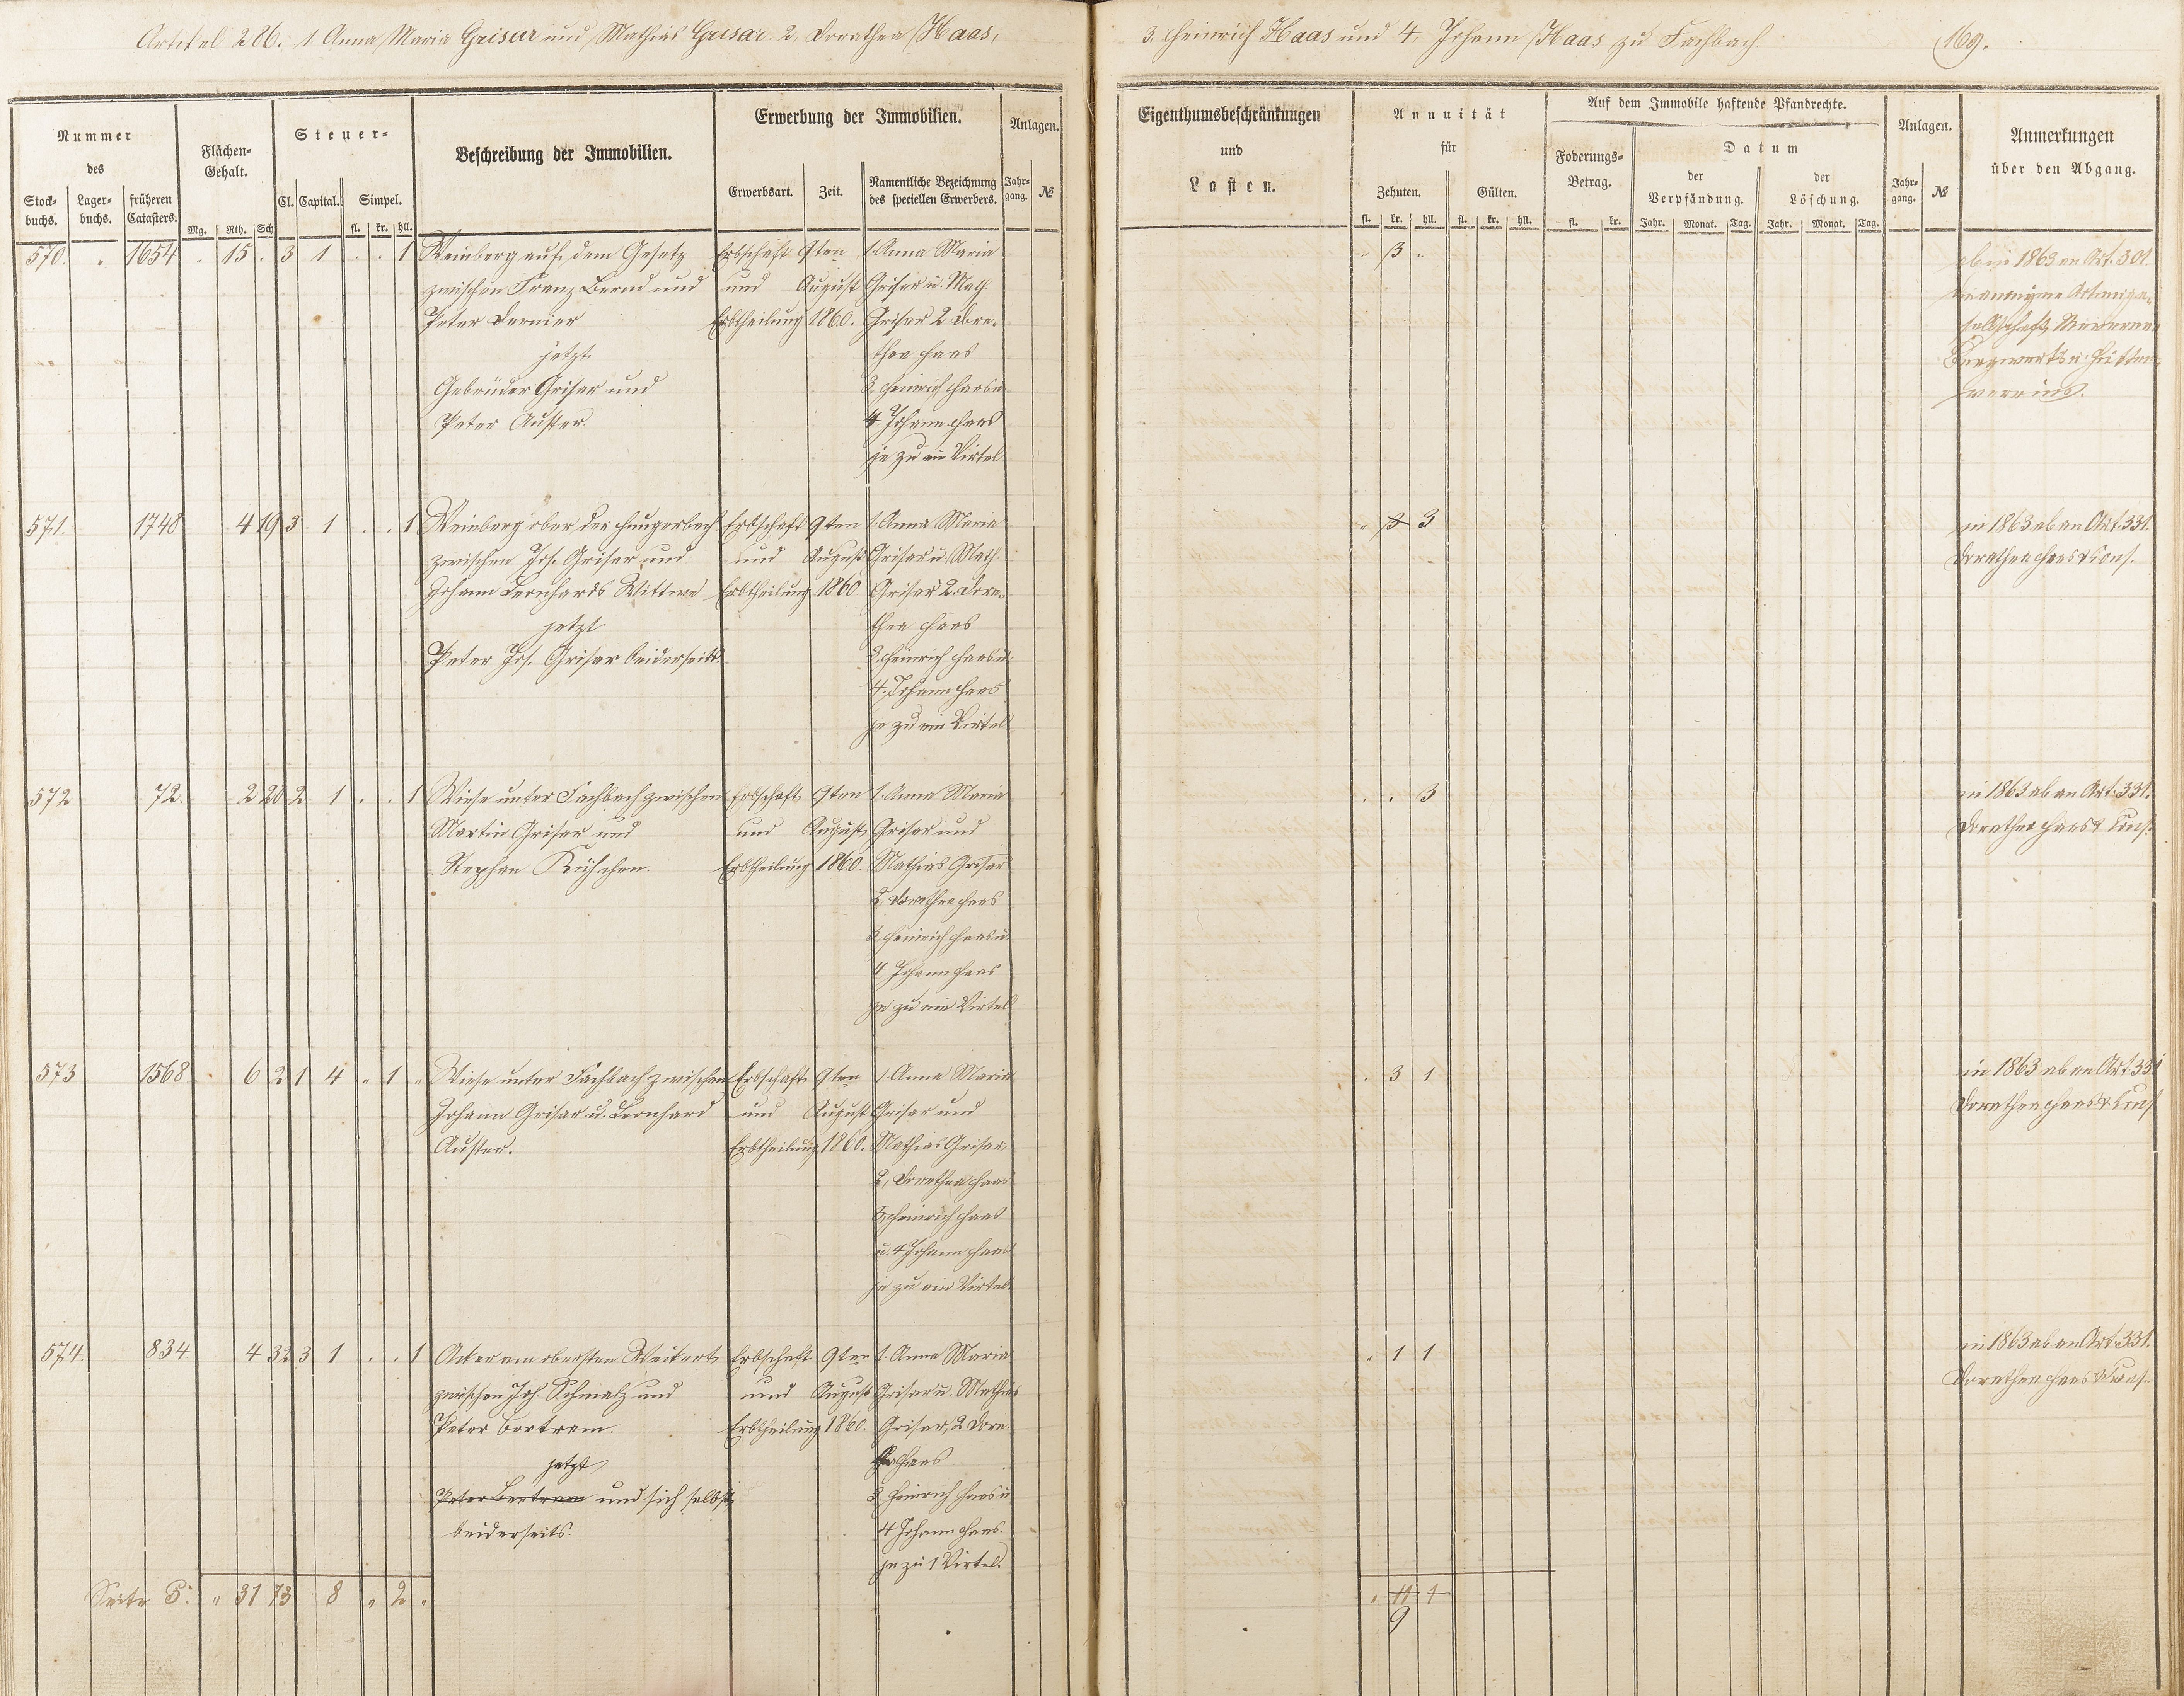 Artikel 286. 1. Anna Maria Grisar und Mathias Grisar. 2. Dorathea Haas,
3. Heinrich Haas und 4. Johann Haas zu Fachbach.
169.
Nummer
des
Stock-
buchs.
Lager-
buchs.
früheren
Catasters.
Flächen-
Gehalt.
Mg. Rth. Sch
Steuer-
Cl. Capital. Simpel.
fl. kr. hll.
Beschreibung der Immobilien.
Erwerbung der Immobilien.
Erwerbsart. Zeit.
Namentliche Bezeichnung
des speciellen Erwerbers.
Anlagen.
Jahr-
gang. №
Eigenthumsbeschränkungen
und
Lasten.
Annuität
für
Zehnten. Gülten.
fl. kr. hll. fl. kr. hll.
Auf dem Immobile haftende Pfandrechte.
Foderungs-
Betrag.
fl. kr.
Datum
der
Verpfändung.
der
Löschung.
Jahr. Monat. Tag. Jahr. Monat. Tag.
Anlagen.
Jahr-
gang. №
Anmerkungen
über den Abgang.
570. " 1654 . 15 . 3 1 . . 1 Weinberg auf dem Gesetz Erbschaft 9ten 1. Anna Maria
zwischen Franz Bernd und und August Grisar u. Math.
Peter Dernier Erbtheilung 1860. Grisar 2 Dora-
jetzt thea Haas
Gebrüder Grisar und 3. Heinrich Haas u.
Peter Auster. 4 Johann Haas
je zu ein Virtel
" 3 .
ab in 1863 an Art. 301.
571. 1748 4 19 3 1 . . 1 Weinberg ober der Hungerbach Erbschaft 9ten 1. Anna Maria
zwischen Joh. Grisar und und August Grisar u. Math.
Johann Leonhards Wittwe Erbtheilung 1860 Grisar 2. Dora-
jetzt thea Haas
Peter Jos. Grisar beiderseits. 3. Heinrich Haas u.
4. Johann Haas
je zu ein Virtel
" 3 3
in 1863 ab an Art. 331.
Dorathea Haas & Cons.
572 72. 2 20 2 1 . . 1 Wiese unter Fachbach zwischen Erbschaft 9ten 1. Anna Maria
Martin Grisar und und August Grisar und
Stephan Kühchen. Erbtheilung 1860. Mathias Grisar
2. Dorathea Haas
3 Heinrich Haas u.
4 Johann Haas
je zu ein Virtel
. . 3
in 1863 ab an Art. 331.
Dorathea Haas & Cons.
573 1568 . 6 2 1 4 " 1 " Wiese unter Fachbach zwischen Erbschaft 9ten 1. Anna Maria
Johann Grisar u. Leonhard und August Grisar und
Auster. Erbtheilung 1860. Mathias Grisar,
2, Dorathea Haas
3 Heinrich Haas
u. 4 Johann Haas
je zu ein Virtel.
. 3 1
in 1863 ab an Art. 331
Dorathea Haas & Cons
574. 834 4 32 3 1 . . 1 Acker am obersten Weitert Erbschaft 9ten 1. Anna Maria
zwischen Joh. Schmalz und und August Grisar u. Mathias
Peter Bertram. Erbtheilung 1860. Grisar, 2 Dora-
jetzt thea Haas
Peter Bertram und sich selbst 3 Heinrich Haas u.
beiderseits. 4 Johann Haas.
je zu 1 Virtel.
" 1 1
in 1863 ab an Art. 331.
Dorathea Haas & Cons.
Seite S: " 31 73 8 " 2 "
" 11 1
9